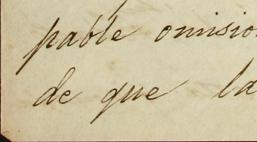 pable omisio
de que la